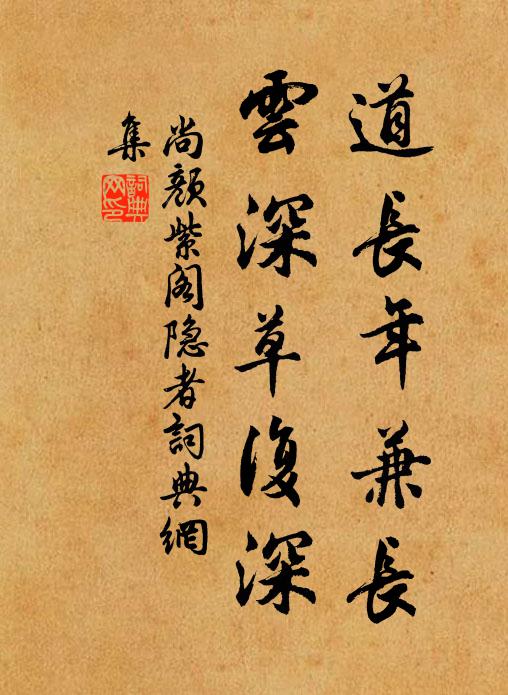 道長年兼長
雲深草復深
尚顏紫阁隐者詞典網
集
詞典
网印